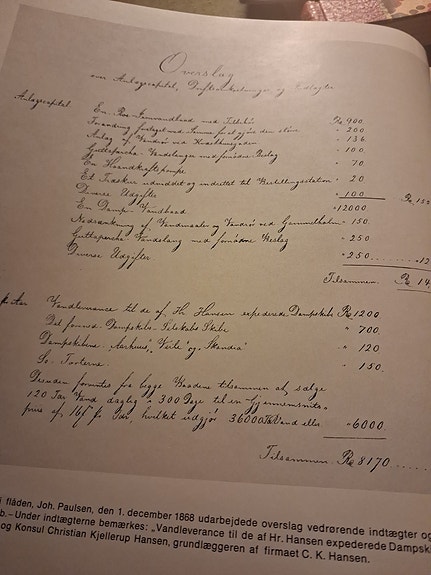 Overslag
over Anlagscapital, Driftsomkostninger og Indtægter
Anlagscapital
En Roe Jernvandbaad med Tilbehør Rd. 900.
Forandring for at gjøre den større " 200
Anlæg af Vandrør ved Kvæsthuusgaden " 136
Guttapercha Vandslanger med fornødne Beslag " 100.
En Haandkraftpumpe " 70
Et Træskuur udmuddet og indrettet til Bestillingsstation " 20
Diverse Udgifter " 100
En Damp-Vandbaad " 12000.
Nedsænkning af Vandmaaler og Vandrør ved Gammelholm " 150.
Guttapercha Vandslang med fornødne Beslag " 250
Diverse Udgifter " 250
Tilsammen Rd. 14
pr Aar Vandleverance til de af Hr. Hansen expederede Dampskib Rd 1200
Det forened. Dampskibs-Selskabs Skibe " 700.
Dampskibene "Aarhuus", "Veile" og "Skandia" " 120
Sø-Torterne " 150.
Desuden formenes fra begge Baadene tilsammen at sælge
120 Tdr. Vand daglig i 300 Dage til en Gjennemsnits
priis af 16 f pr Tdr, hvilket udgjør 36000 Td Vand eller " 6000
Tilsammen Rd 8170
i flåden, Joh. Paulsen, den 1. december 1868 udarbejdede overslag vedrørende indtægter og
b. – Under indtægterne bemærkes: „Vandleverance til de af Hr. Hansen expederede Dampski
og Konsul Christian Kjellerup Hansen, grundlæggeren af firmaet C. K. Hansen.